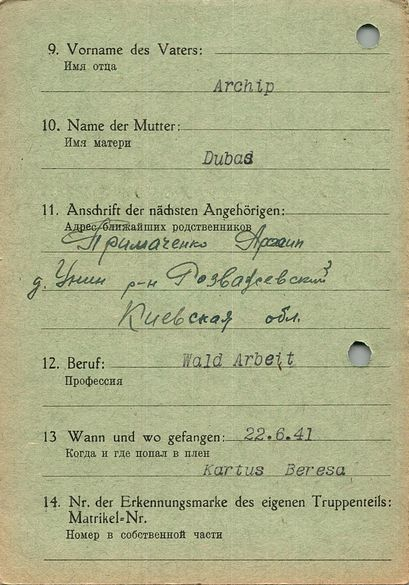 9. Vorname des Vaters:
Имя отца
Archip
10. Name der Mutter:
Имя матери
Dubas
11. Anschrift der nächsten Angehörigen:
Адрес ближайших родственников
Примаченко Архип
д. Унин р-н Розважевский
Киевская обл.
12. Beruf: Wald Arbeit
Профессия
13 Wann und wo gefangen: 22.6.41
Когда и где попал в плен
Kartus Beresa
14. Nr. der Erkennungsmarke des eigenen Truppenteils:
Matrikel=Nr.
Номер в собственной части